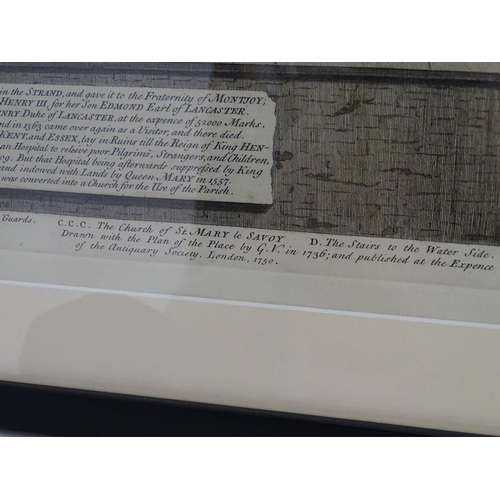 in the STRAND, and gave it to the Fraternity of MONTJOY;
HENRY III, for her Son EDMOND Earl of LANCASTER.
NRY Duke of LANCASTER, at the expence of 52000 Marks.
nd in 1363 came over again as a Visitor, and there died.
KENT, and ESSEX, lay in Ruins till the Reign of King HEN-
an Hospital to releive poor Pilgrims, Strangers, and Children,
09. But that Hospital being afterwards suppressed by King
and indowed with Lands by Queen MARY in 1557.
was converted into a Church for the Use of the Parish.
Guards. C.C.C. The Church of St. MARY le SAVOY D. The Stairs to the Water Side.
Drawn with the Plan of the Place by G.V. in 1736; and published at the Expence
of the Antiquary Society, London, 1750.